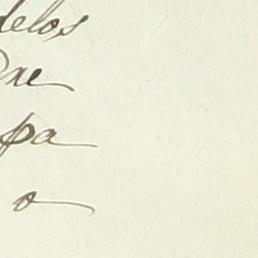 delos
que
pa
o